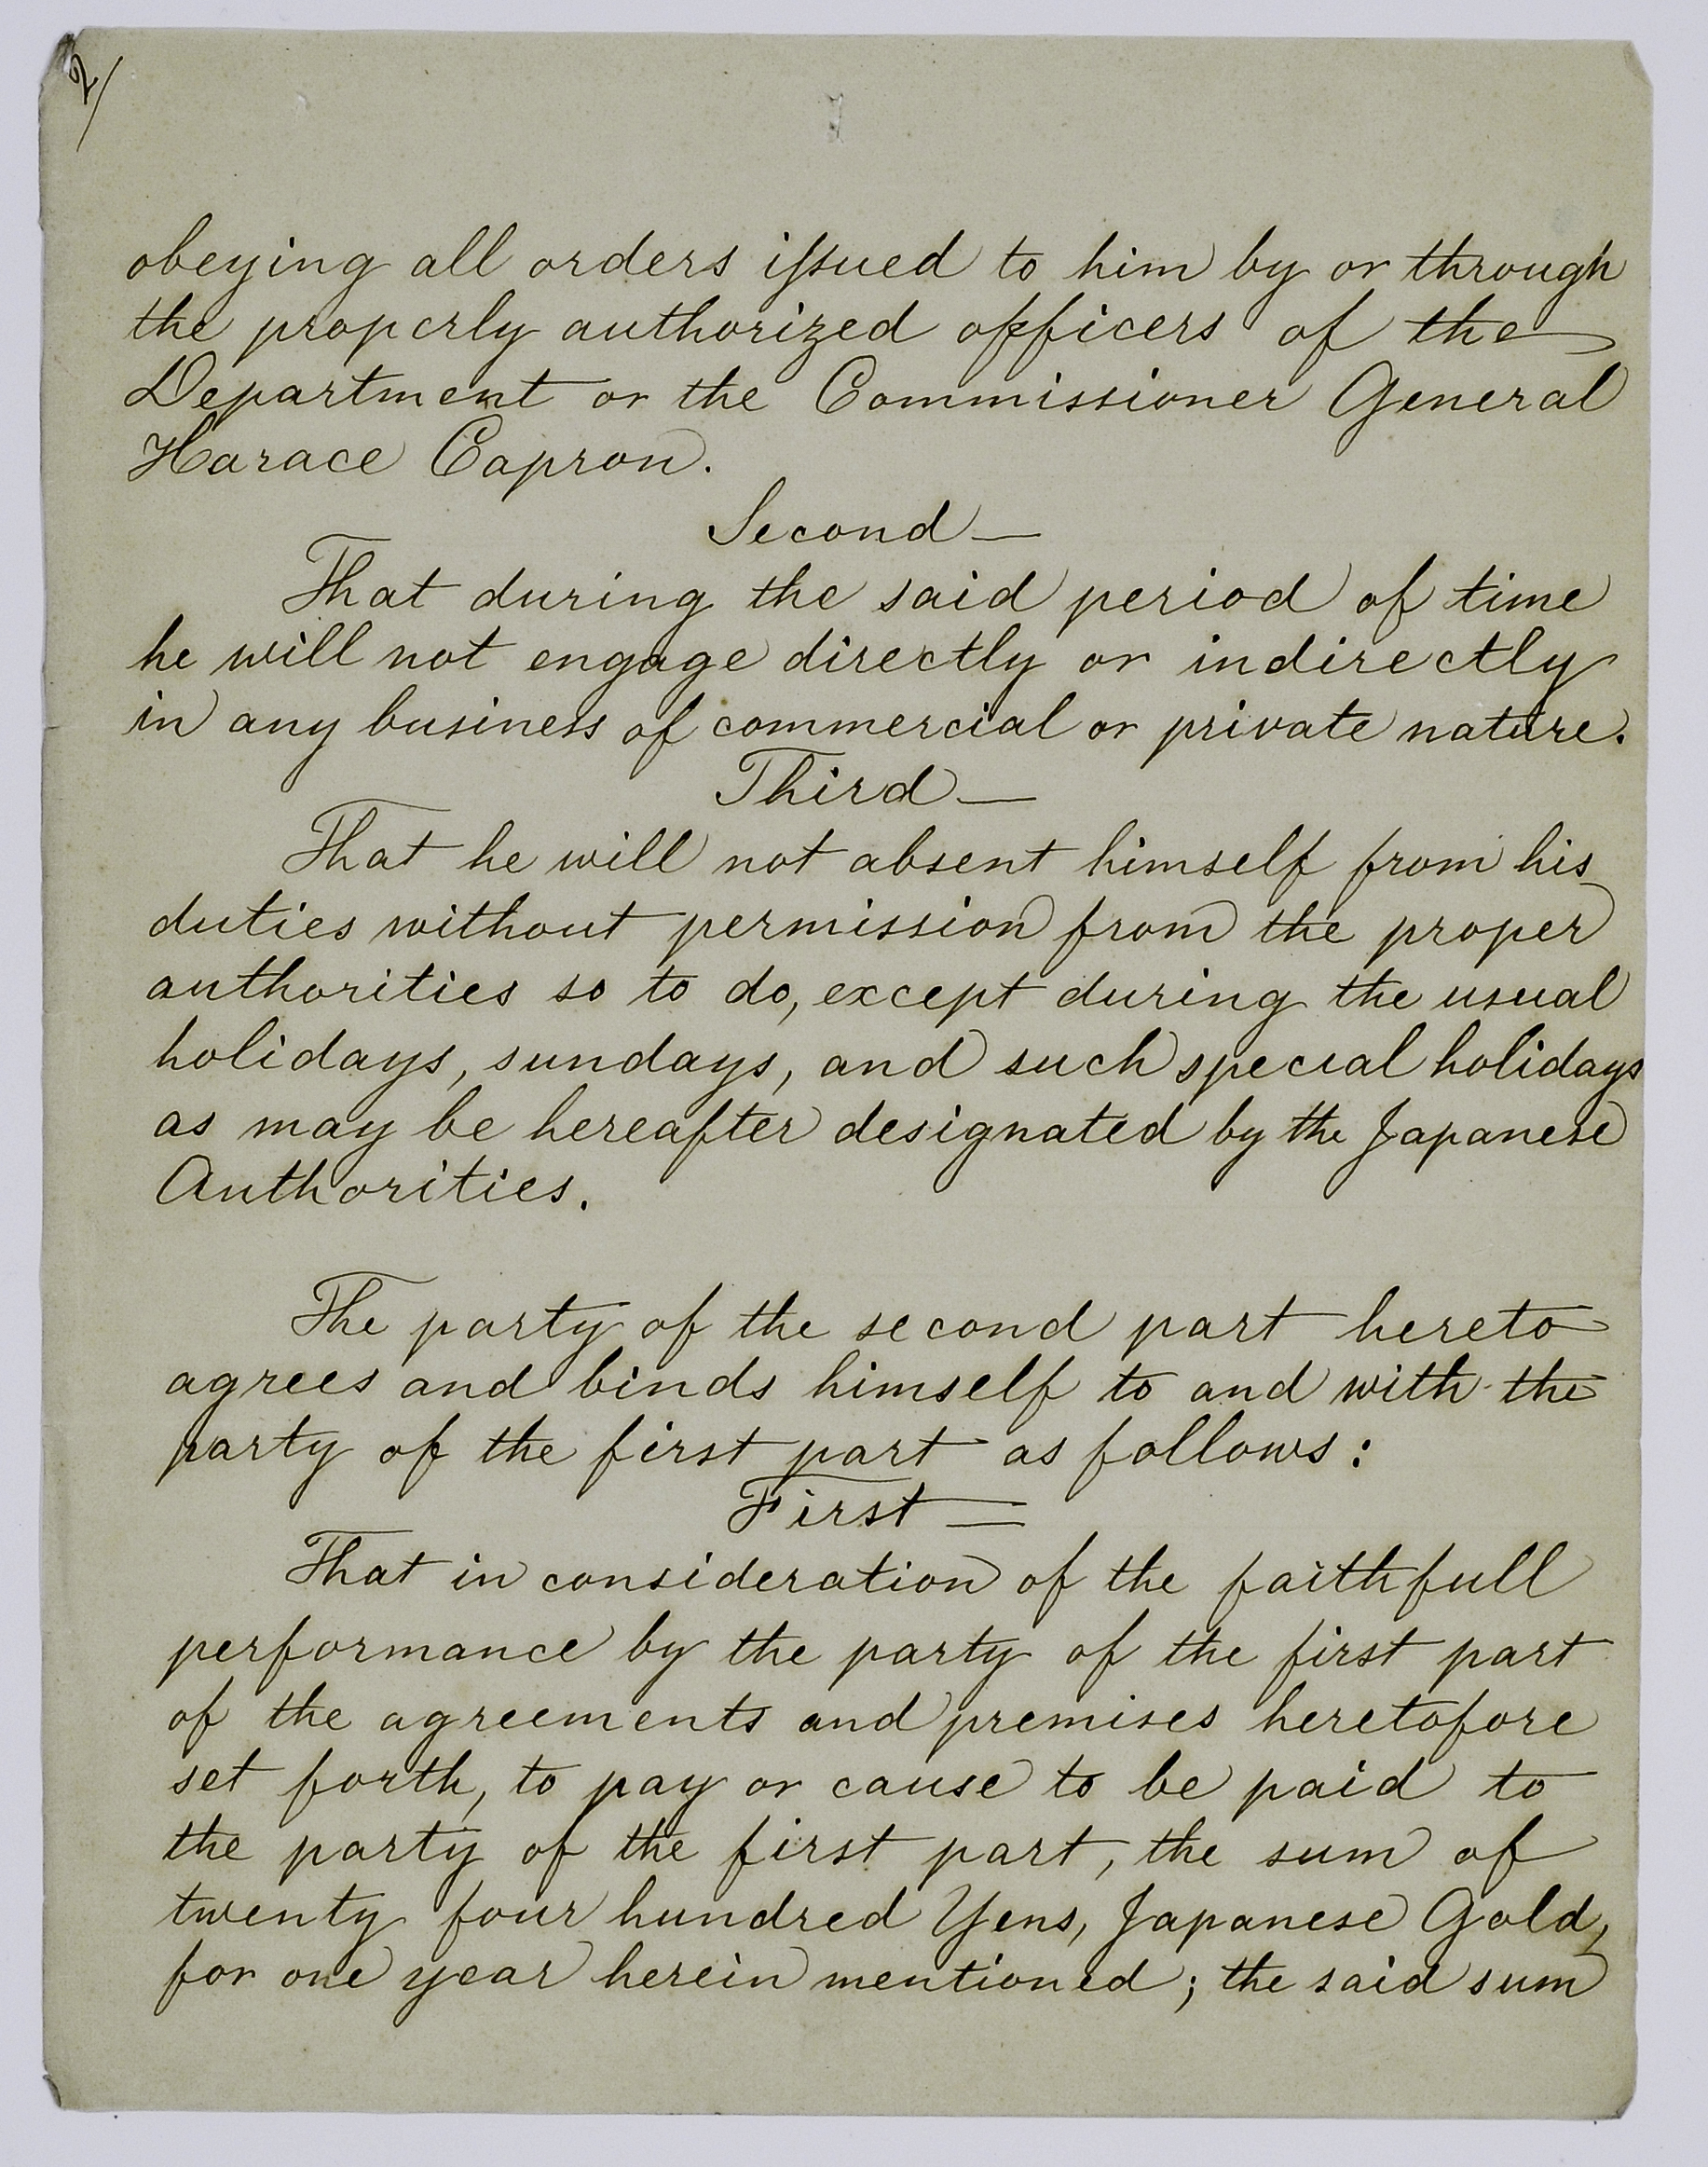 2/
obeying all orders issued to him by or through
the properly authorized officers of the
Department or the Commissioner General
Horace Capron.
Second —
That during the said period of time
he will not engage directly or indirectly
in any business of commercial or private nature.
Third —
That he will not absent himself from his
duties without permission from the proper
authorities so to do, except during the usual
holidays, sundays, and such special holidays
as may be hereafter designated by the Japanese
Authorities.
The party of the second part hereto
agrees and binds himself to and with the
party of the first part as follows:
First —
That in consideration of the faithfull
performance by the party of the first part
of the agreements and premises heretofore
set forth, to pay or cause to be paid to
the party of the first part, the sum of
twenty four hundred Yens, Japanese Gold,
for one year herein mentioned; the said sum